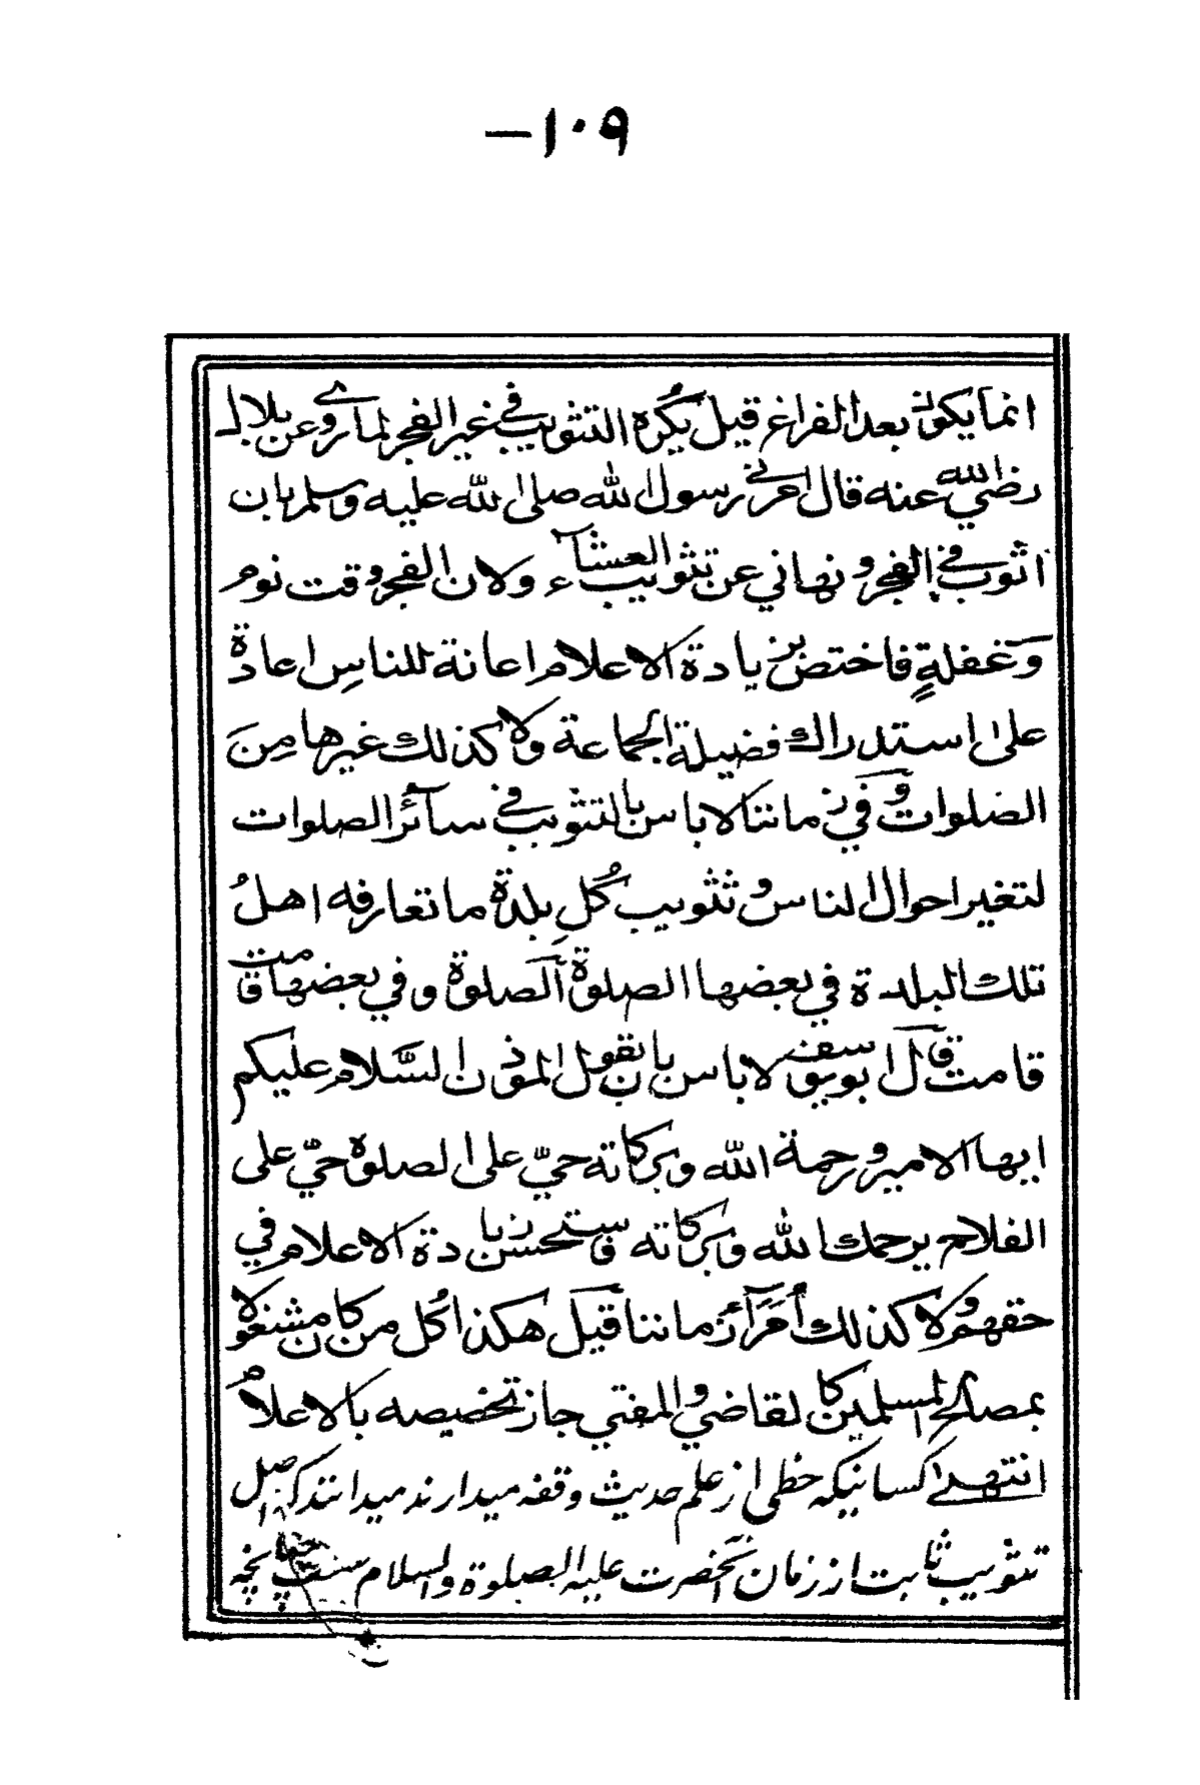 ۱۰۹-
انما یکون بعد الفراغ قیل یُکره التثویب في غیر الفجر لما روي عن بلال
رضي الله عنه قال امرني رسول الله صلى الله علیه وسلم بان
اثوب في الفجر و نهاني عن تثویب العشآء ولان الفجر وقت نوم
وَغفلةٍ فاختص بزیادة الاعلام اعانة للناسِ اعادةً
على استدراك فضیلة الجماعة ولا کذلك غیرها مِنَ
الصلوات وَفي زماننا لا باس بالتثویب في سآئر الصلوات
لتغیر احوال الناس و تثویب کُلِ بلدة ما تعارفه اهلُ
تلك البلدة في بعضها الصلوة اَلصلوة و في بعضها قامت
قامت قال ابویوسف لا باس بان یقول الموذن السَّلام علیکم
ایها الامیر ورحمة الله وبرکاته حيّ على الصلوة حيّ على
الفلاح یرحمك الله وبرکاته واستحسن زیادة الاعلام في
حقهم ولا کذلك اُمَرَآئ زماننا قیل هکذا کُل من کان مشغولا
بمصالح المسلمین کالقاضي والمفتي جاز تخصیصه بالاعلام
انتهى کسانیکه حظی از علم حدیث و فقه میدارند میدانند که اصل
تثویب ثابت از زمان آنحضرت علیه الصلوة والسلام ست چنانچه